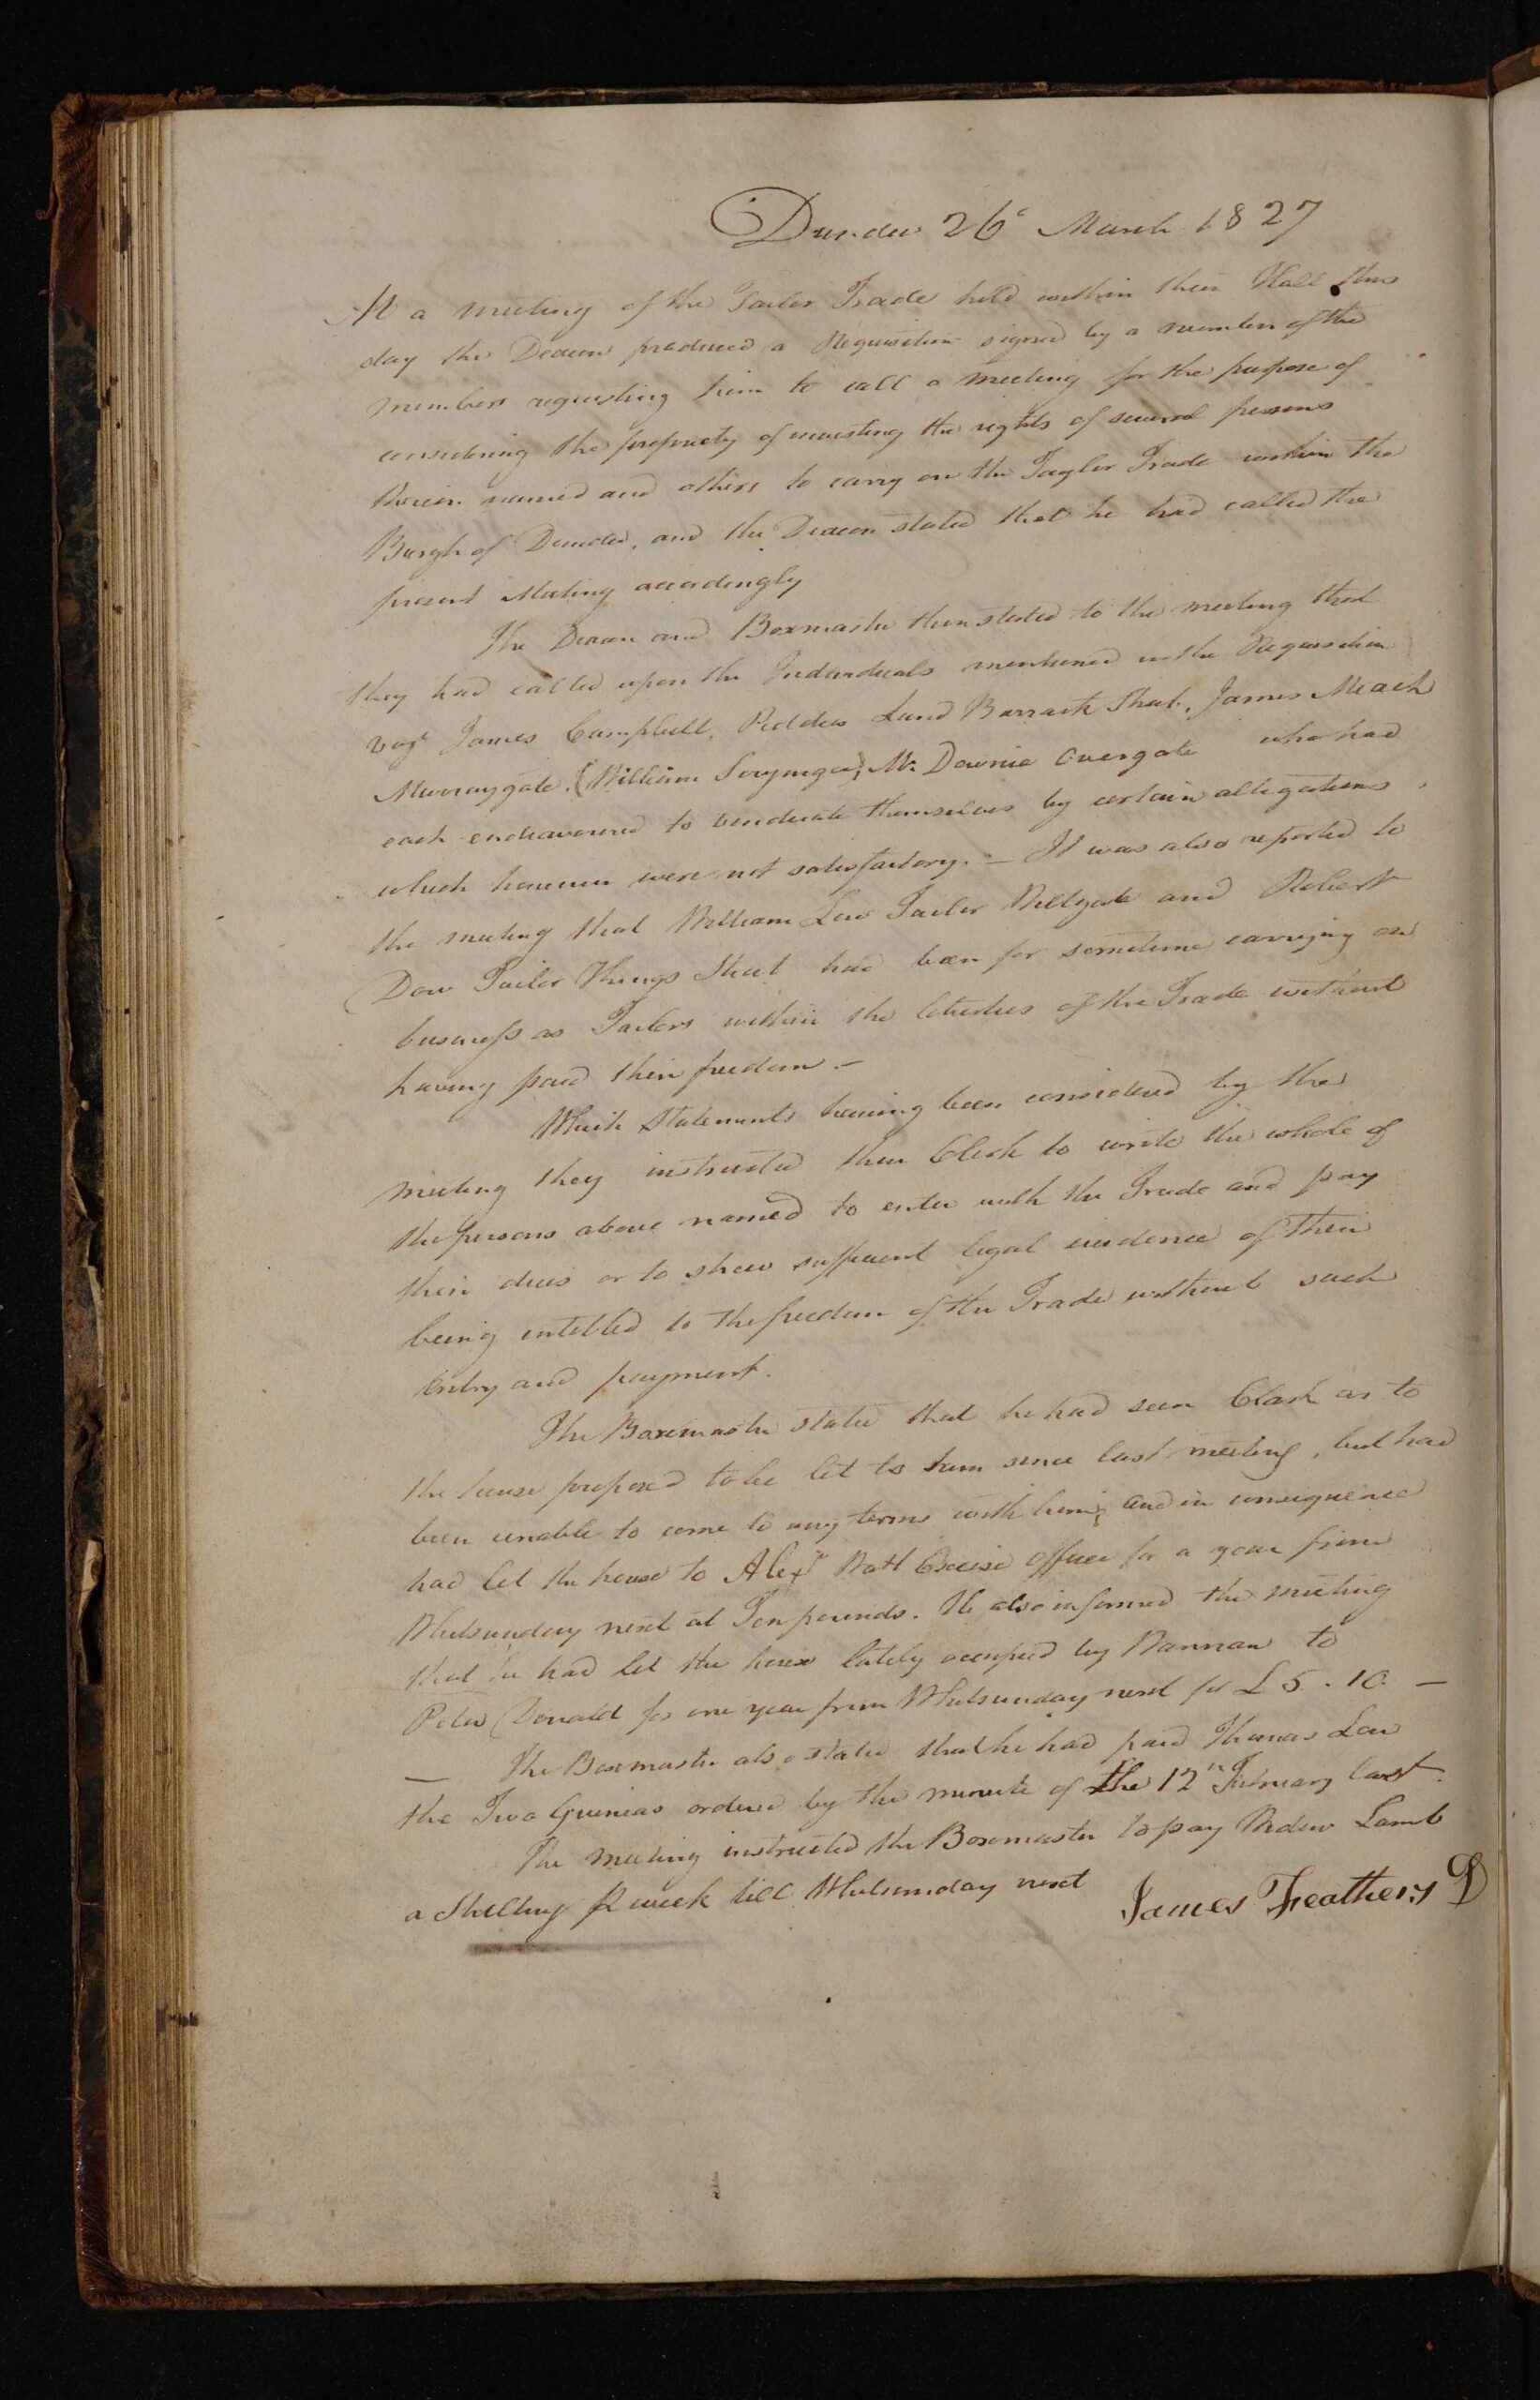 Dundee 26 March 1827
At a meeting of the Tailor Trade held within their Hall this
day the Deacon produced a Requisition signed by a number of the
members requesting him to call a meeting for the purpose of
considering the propriety of the rights of several persons
therein named and others to carry on the Taylor Trade within the
Burgh of Dundee, and the Deacon stated that he had called the
present Meeting accordingly
The Deacon and Boxmaster then stated to the meeting that
they had called upon the Individuals mentioned in the Requisition
vizt James Campbell, Peddies Land Barrack Street, James Meach
Murraygate, (William Scrymgeor), Mr Downie Overgate who had
each endeavoured to vindicate themselves by certain allegations
which however were not satisfactory. — It was also reported to
the meeting that William Low Tailor Wellgate and Robert
Dow Tailor Things Street had been for sometime carrying on
business as Tailors within the liberties of the Trade without
having paid their freedom —
Which Statements having been considered by the
meeting they instructed their Clerk to write the whole of
the persons above named to enter with the Trade and pay
their dues or to shew sufficient legal evidence of their
being entitled to the freedom of the Trade without such
entry and payment.
The Boxmaster stated that he had seen Clark as to
the house proposed to be let to him since last meeting, but had
been unable to come to any terms with him; and in consequence
had let the house to Alexr Watt Excise Officer for a year from
Whitsunday next at Ten pounds. He also informed the meeting
that he had let the house lately occupied by Bannan to
Peter Donald for one year from Whitsunday next for £5.10 —
— The Boxmaster also stated that he had paid Thomas Low
the Two Guineas ordered by the minute of the 12th February last.
The meeting instructed the Boxmaster to pay Widow Lamb
a Shilling P week till Whitsunday next
James Feathers D